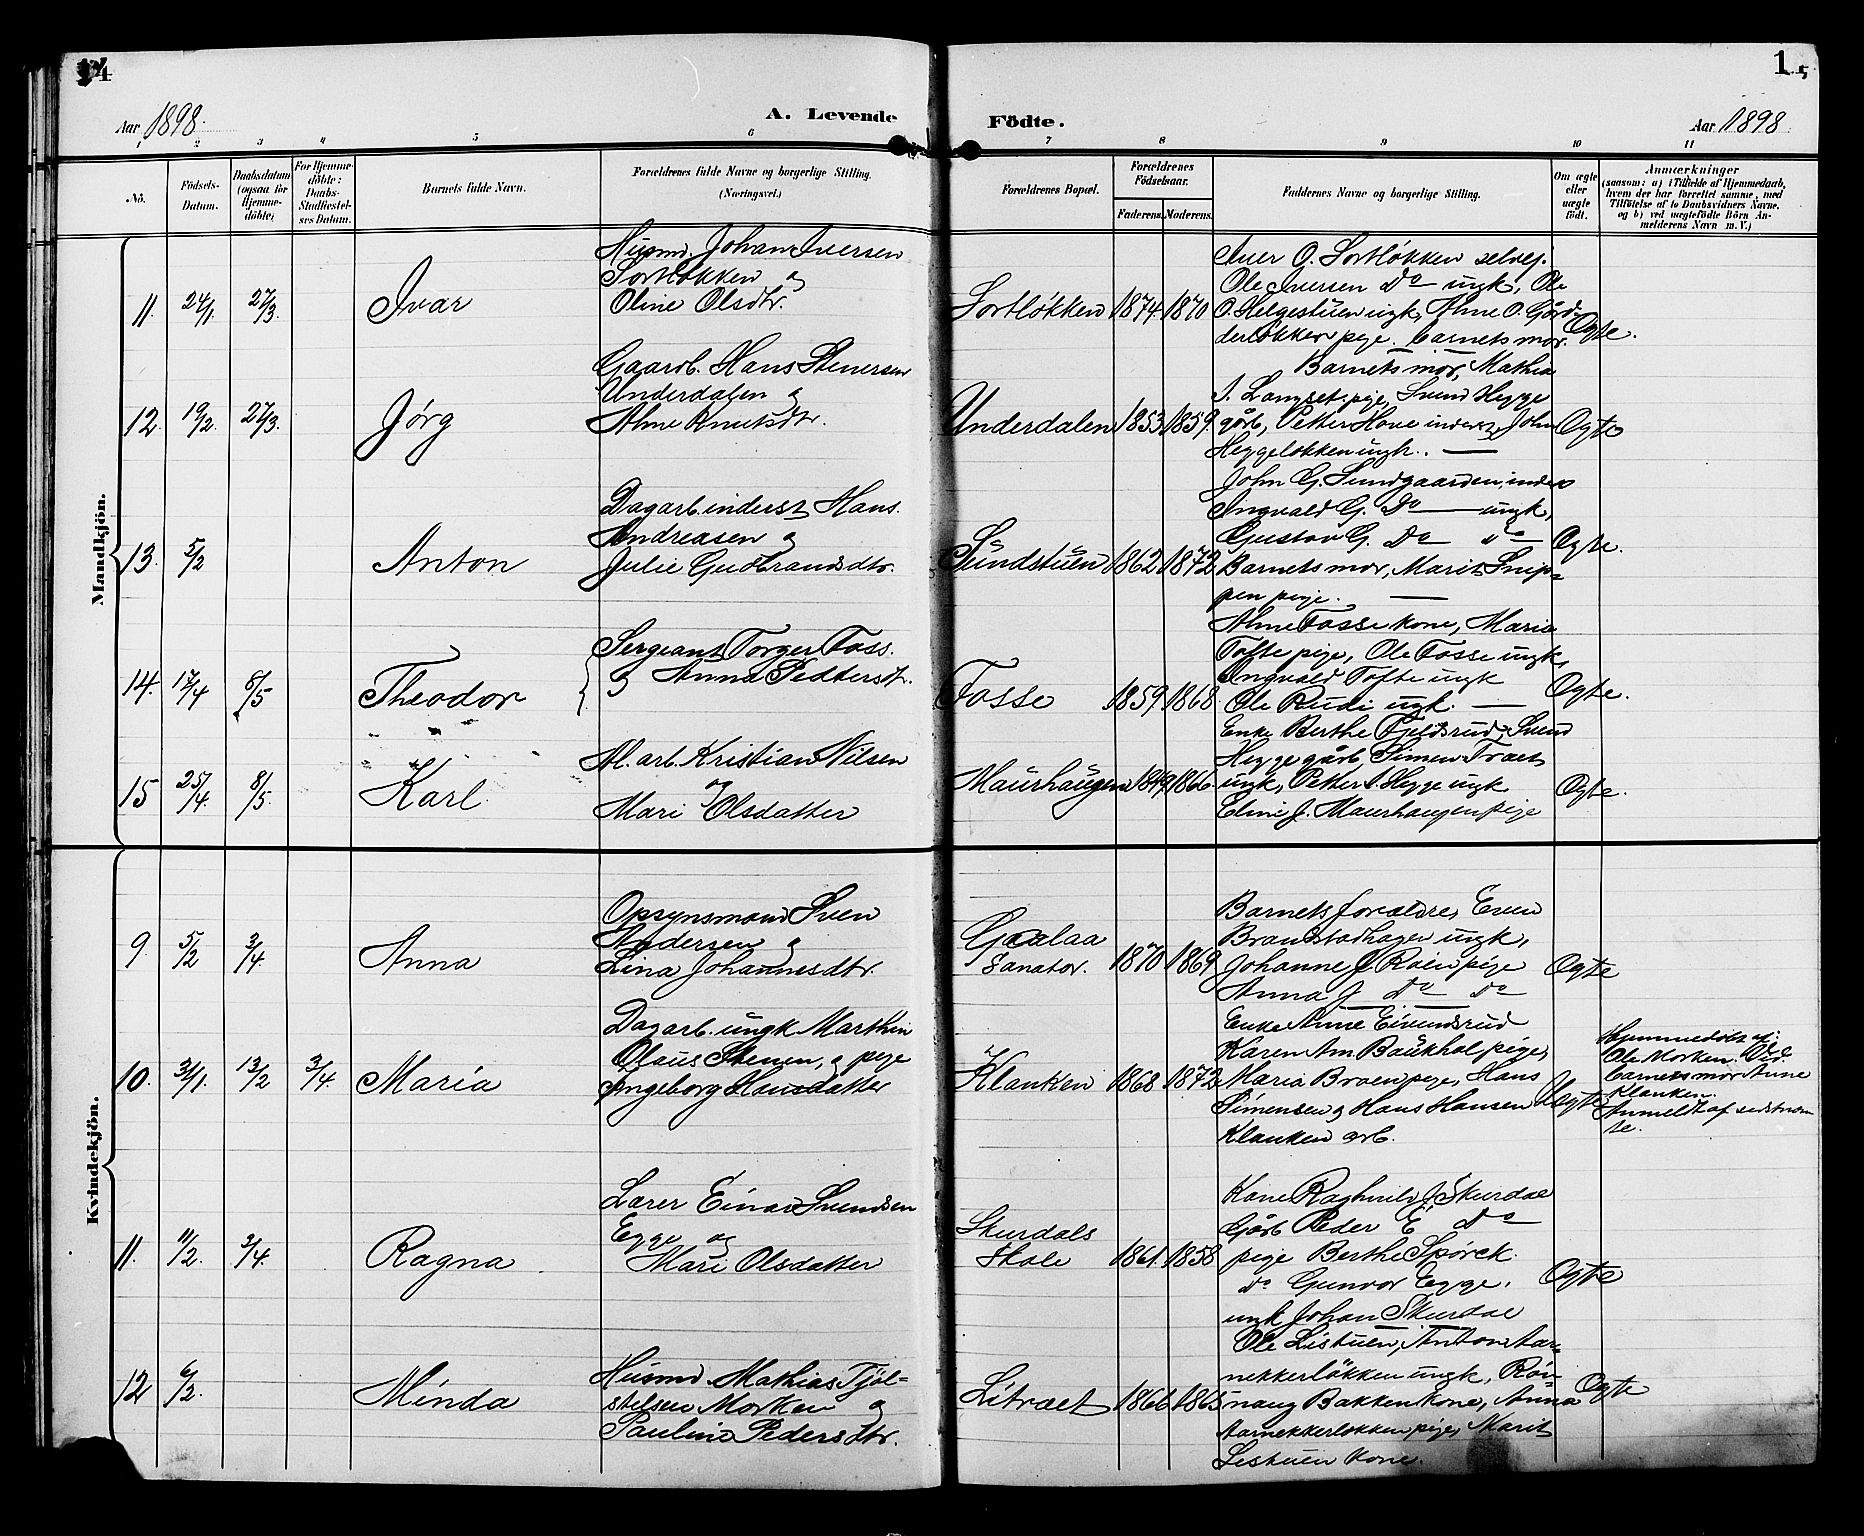 14
Aar 1898.
A. Levende
Födte.
Aar 1898.
1 2 3 4 5 6 7 8 9 10 11
No.
Födsels-
Datum.
Daabsdatum
(ogsaa for
Hjemme-
döbte).
For Hjemme-
döbte:
Daabs-
Stadfæstel-
ses Datum.
Barnets fulde Navn.
Forældrenes fulde Navne og borgerlige Stilling.
(Næringsvei.)
Forældrenes Bopæl.
Forældrenes
Födselsaar.
Faderens. Moderens.
Faddernes Navne og borgerlige Stilling.
Om ægte
eller
uægte
födt.
Anmærkninger
(saasom: a) i Tilfælde af Hjemmedaab,
hvem der har forrettet samme, med
Tilföielse af to Daabsvidners Navne.
og b) ved uægtefödte Börn An-
melderens Navn m. V.)
Mandkjön.
11. 24/1. 27/3. Ivar
Husmd. Johan Iversen
Sortløkken og
Oline Olsdtr.
Sortløkken 1874. 1870
Iver O. Sortløkken selvej.
Ole Iversen Do ungk, Ole
O. Helgestuen ungk, Ahne O. Gård-
derløkken pige. Barnets mor.
Ægte.
12. 19/2. 27/3. Jørg
Gaardb. Hans Stenersen
Underdalen og
Ahne Knutsdtr.
Underdalen 1853. 1859.
Barnets mor, Mathia
J. Langset pige, Svend Hegge
gårb, Petter Hove inderst, John
Heggeløkken ungk.
Ægte
13. 5/2 Anton
Dagarb. inderst Hans
Andreasen og
Julie Gudbrandsdtr.
Sundstuen 1862. 1872
John G. Sundgaarden, inders
Ingvald G. Do ungk,
Gustav G. Do do
Barnets mor, Marit Snip-
pen pige.
Ægte.
14. 17/4 8/5 Theodor
Sergeant Torger Foss.
og Anna Pedtersdtr.
Fosse 1859. 1868.
Ahne Fosse kone, Maria
Tofte pige, Ole Fosse ungk,
Ingvald Tofte ungk
Ole Rudi ungk.
Ægte.
15 25/4. 8/5. Karl
Al. arb. Kristian Nilsen
og
Mari Olsdatter
Maurhaugen 1849. 1866.
Enke Berthe Fjeldsrud, Svend
Hegge gårb, Simen Traet
ungk, Petter S. Hegge ungk
Eline J. Maurhaugen pige
Ægte.
Kvindekjön.
9. 5/2 3/4. Anna
Opsynsmand Sven
Andersen og
Lina Johannesdtr.
Gaalaa
Sanator. 1870 1869
Barnets forældre, Even
Brandstadhagen ungk,
Johanne J. Roen pige
Anna J Do do
Ægte
10. 31/1. 13/2 3/4. Maria
Dagarb. ungk Marthin
Olaus Stenen, og pige
Ingeborg Hansdatter
Klanken 1868 1872
Enke Anne Eivindsrud
Karen Am. Baukhol pige,
Maria Broen pige, Hans
Simensen og Hans Hansen
Klanken arb.
Uægte
Hjemmedöbt af:
Ole Morken. Vid.
barnets mor Anne
Klanken.
Anmeldt af sidstnæv
te.
11. 11/2. 3/4. Ragna
Lærer Einar Svendsen
Egge og
Mari Olsdatter
Skurdals
Skole 1861. 1858
Kone Raghnild J. Skurdal
Gårb Peder E. Do
pige Berthe Spörck.
do Gunvor Egge.
ungk Johan Skurdal
Ægte
12 6/2. Minda
Husmd. Mathias Tjøl-
stelsen Morken og
Pauline Pedersdtr.
Litraet 1866 1865
Ole Listuen, Anton Aar-
nekkerløkken ungk, Røn-
naug Bakken kone, Anna
Aarnekkerløkken pige, Marit
Listuen kone.
Ægte